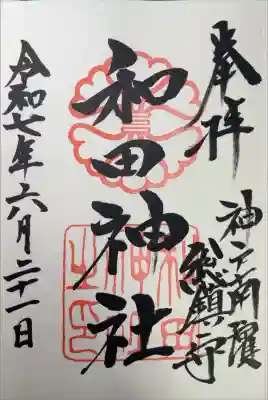 奉拝
神戸南濱
総鎮守
和田神社
令和七年六月二十一日